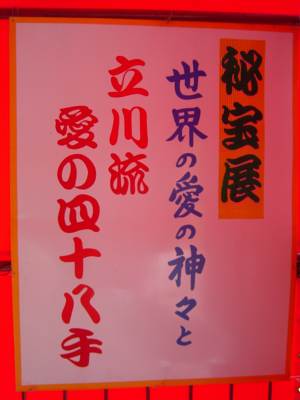 秘宝展
世界の愛の神々と
立川流
愛の四十八手